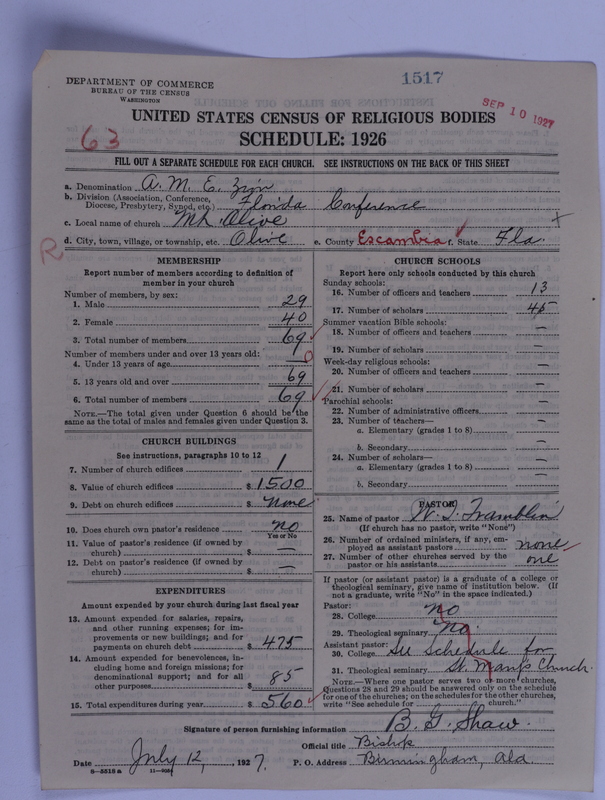 1517
SEP 10 1927
DEPARTMENT OF COMMERCE
BUREAU OF THE CENSUS
WASHINGTON
UNITED STATES CENSUS OF RELIGIOUS BODIES
63
SCHEDULE: 1926
FILL OUT A SEPARATE SCHEDULE FOR EACH CHURCH. SEE INSTRUCTIONS ON THE BACK OF THIS SHEET
a. Denomination A. M. E. Zion
b. Division (Association, Conference, Diocese, Presbytery, Synod, etc.) Florida Conference
c. Local name of church Mt. Olive
R
d. City, town, village, or township, etc. Olive e. County Escambia f. State Fla.
MEMBERSHIP
Report number of members according to definition of
member in your church
Number of members, by sex:
1. Male 29
2. Female 40
3. Total number of members 69
Number of members under and over 13 years old:
4. Under 13 years of age 0
5. 13 years old and over 69
6. Total number of members 69
NOTE.—The total given under Question 6 should be the
same as the total of males and females given under Question 3.
CHURCH BUILDINGS
See instructions, paragraphs 10 to 12
7. Number of church edifices 1
8. Value of church edifices $ 1500
9. Debt on church edifices $ none
10. Does church own pastor's residence no
Yes or No
11. Value of pastor's residence (if owned by
church) $ —
12. Debt on pastor's residence (if owned by
church) $ —
EXPENDITURES
Amount expended by your church during last fiscal year
13. Amount expended for salaries, repairs,
and other running expenses; for im-
provements or new buildings; and for
payments on church debt $ 475
14. Amount expended for benevolences, in-
cluding home and foreign missions; for
denominational support; and for all
other purposes $ 85
15. Total expenditures during year $ 560
CHURCH SCHOOLS
Report here only schools conducted by this church
Sunday schools:
16. Number of officers and teachers 13
17. Number of scholars 45
Summer vacation Bible schools:
18. Number of officers and teachers —
19. Number of scholars —
Week-day religious schools:
20. Number of officers and teachers —
21. Number of scholars —
Parochial schools:
22. Number of administrative officers —
23. Number of teachers—
a. Elementary (grades 1 to 8) —
b. Secondary —
24. Number of scholars—
a. Elementary (grades 1 to 8) —
b. Secondary —
PASTOR
25. Name of pastor Tramblin
(If church has no pastor, write "None")
26. Number of ordained ministers, if any, em-
ployed as assistant pastors none
27. Number of other churches served by the
pastor or his assistants one
If pastor (or assistant pastor) is a graduate of a college or
theological seminary, give name of institution below. (If
not a graduate, write "No" in the space indicated.)
Pastor:
28. College No
29. Theological seminary No
Assistant pastor:
30. College See Schedule for
31. Theological seminary St. Mark's Church.
NOTE.—Where one pastor serves two or more churches,
Questions 28 and 29 should be answered only on the schedule
for one of the churches; on the schedules for the other churches,
write "See schedule for church."
Signature of person furnishing information B. G. Shaw.
Official title Bishop
Date July 12, 1927. P. O. Address Birmingham, Ala.
8-3515 a